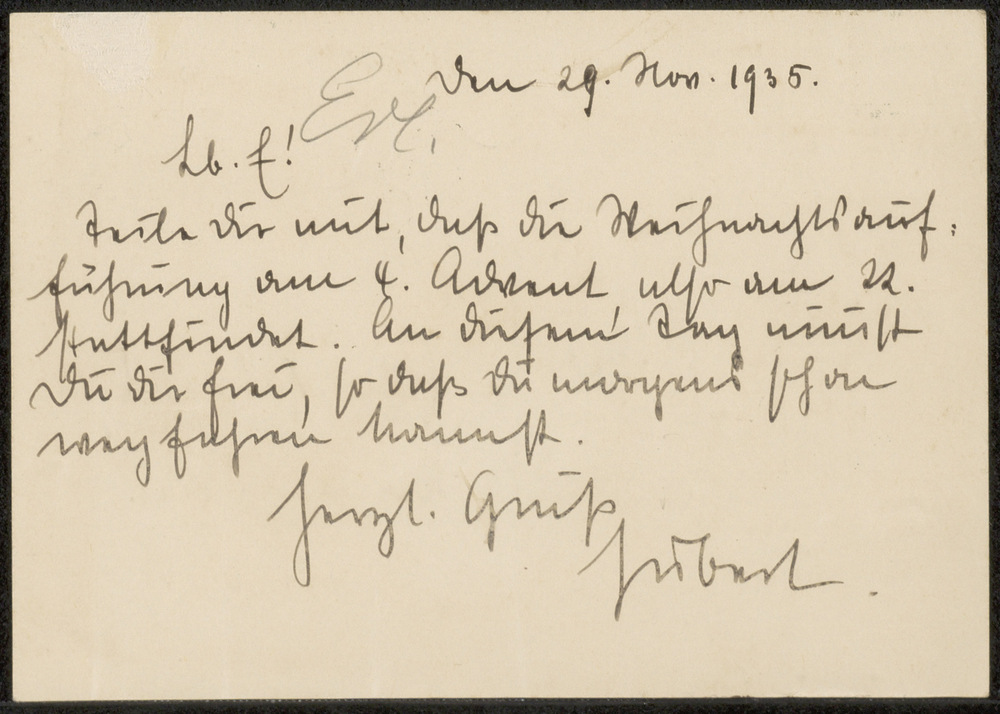 den 29. Nov. 1935.
Erl.
Lb. E!
Teile Dir mit, daß die Weihnachtsauf=
führung am 4. Advent also am 22.
stattfindet. An diesem Tag nimmst
Du Dir frei, so daß Du morgens schon
wegfahren kannst.
Herzl. Gruß
Hubert.